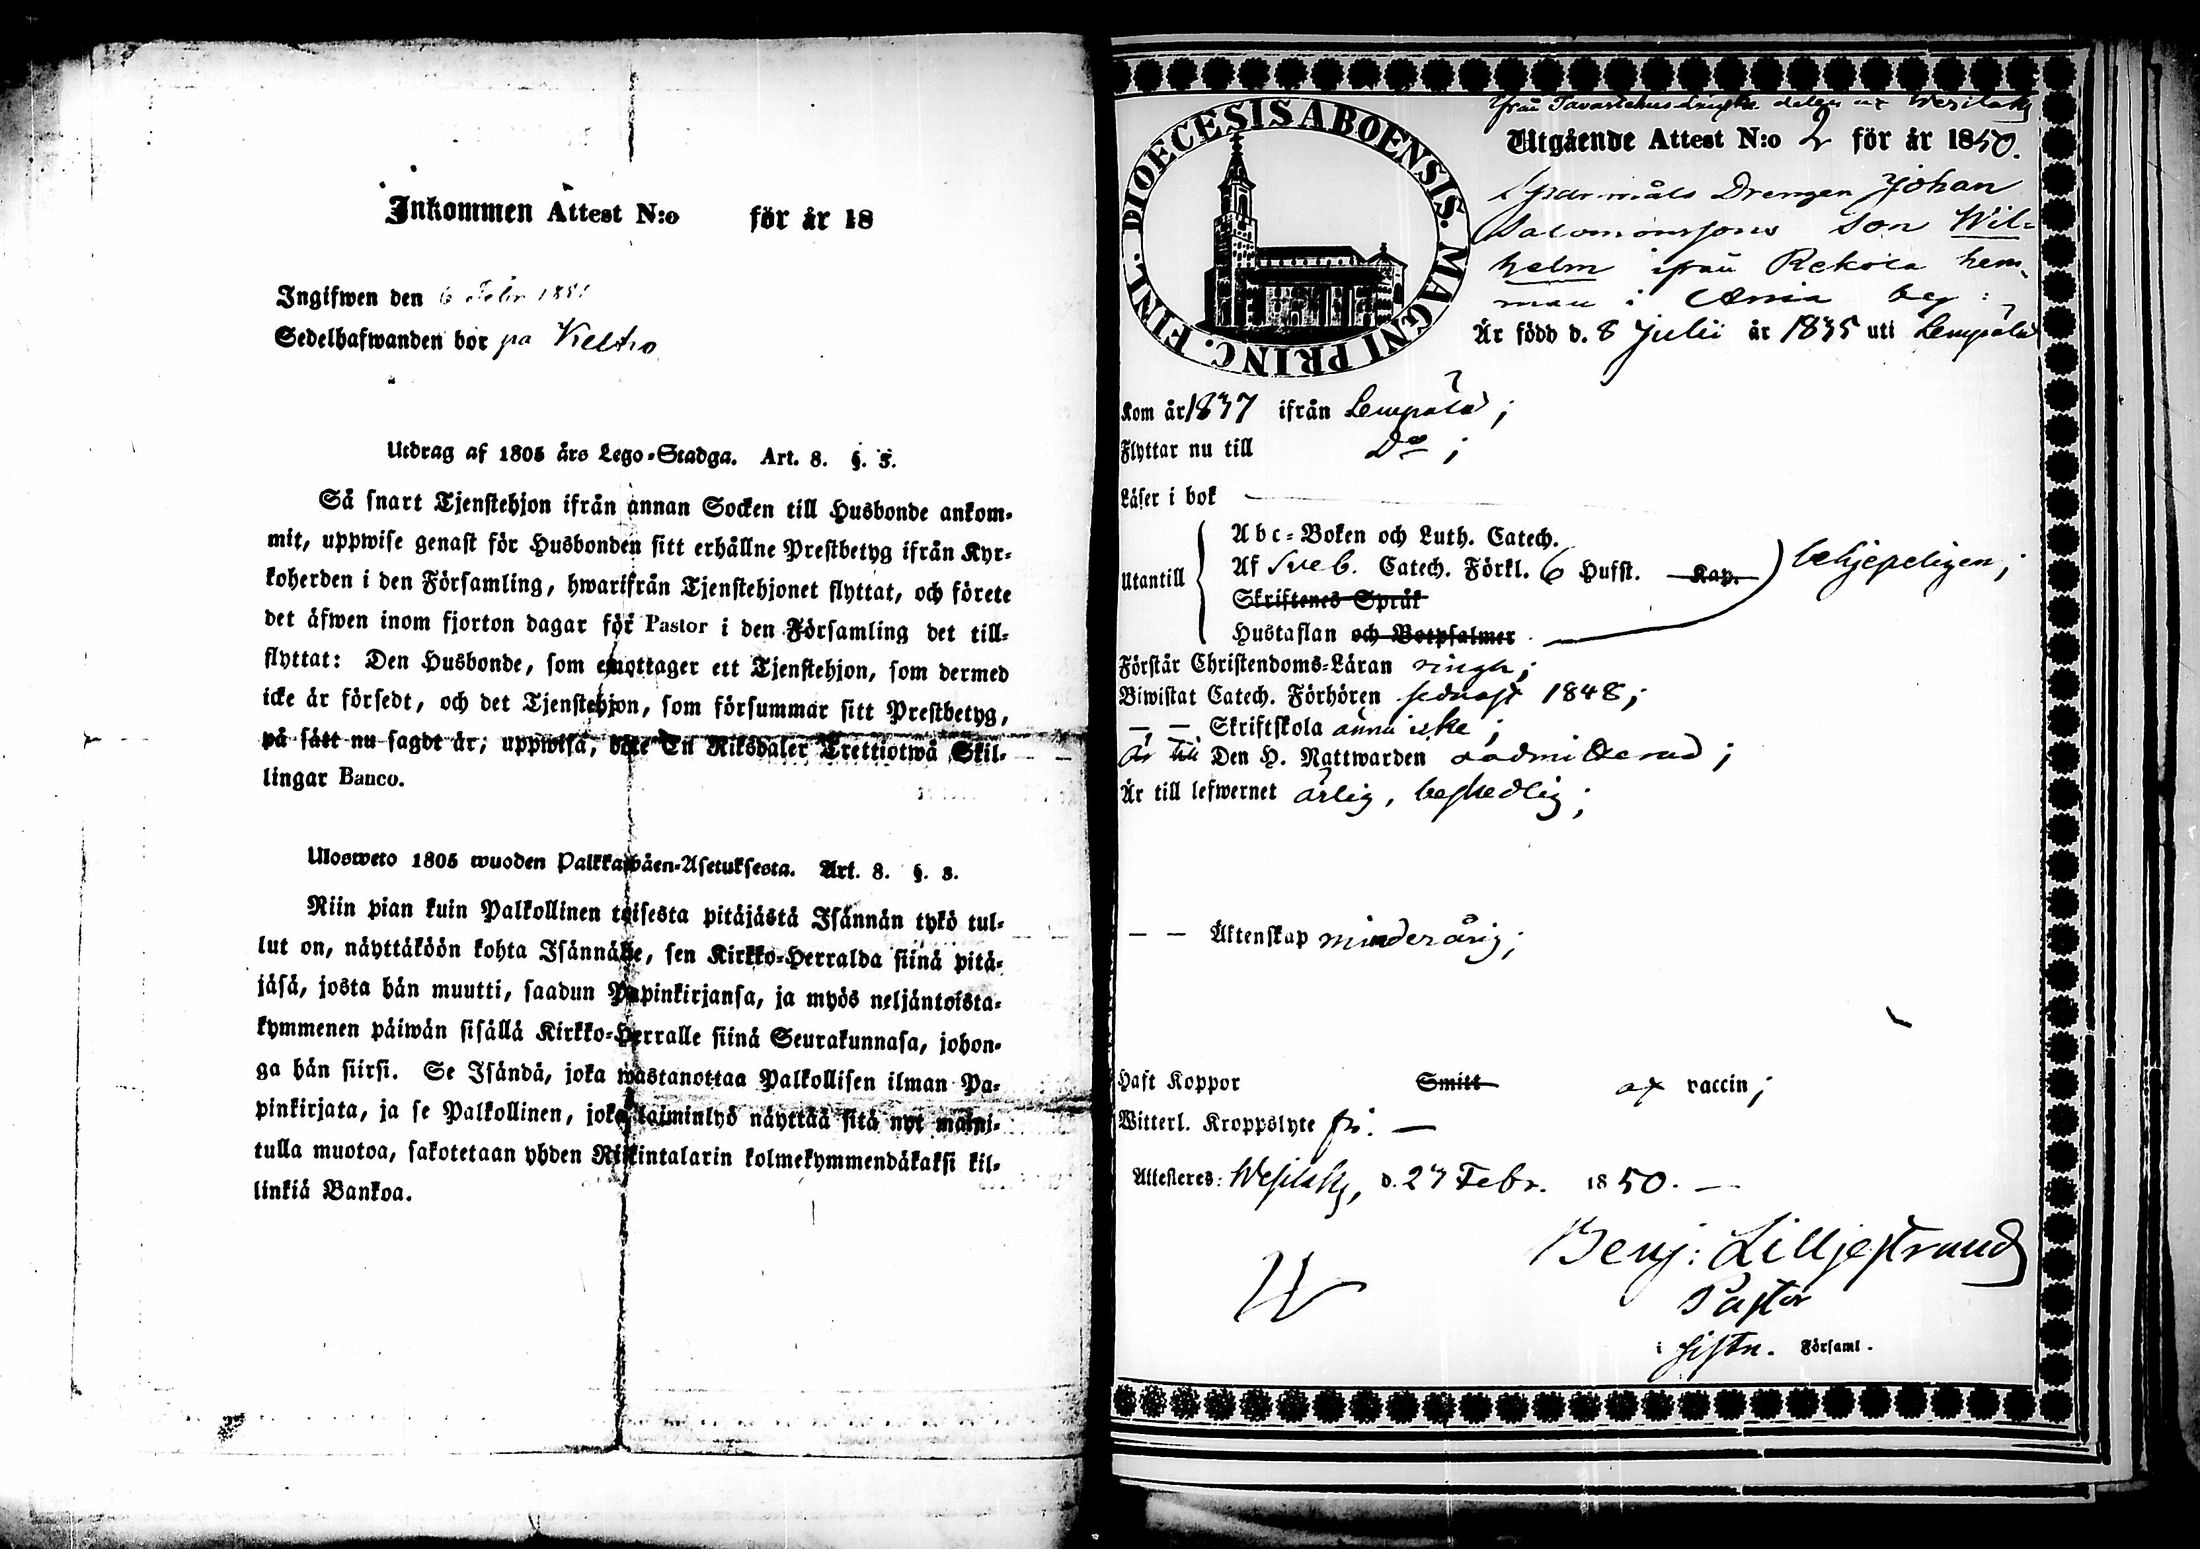 Inkommen Attest N:o för år 18
Ingifwen den 6 Febr 1851
Sedelhafwanden bor på Keltto
Utdrag af 1805 års Lego-Stadga. Art. 8. §. 3.
Så snart Tjenstehjon ifrån annan Socken till Husbonde ankom-
mit, uppwise genast för Husbonden sitt erhållne Prestbetyg ifrån Kyr-
koherden i den Församling, hwarifrån Tjenstehjonet flyttat, och förete
det äfwen inom fjorton dagar för Pastor i den Församling det till-
flyttat: Den Husbonde, som emottager ett Tjenstehjon, som dermed
icke är försedt, och det Tjenstehjon, som försummar sitt Prestbetyg,
på sätt nu sagdt är, uppwisa, böte En Riksdaler Trettiotwå Skil-
lingar Banco.
Ulosweto 1805 wuoden Palkkawäen-Asetuksesta. Art. 8. §. 3.
Niin pian kuin Palkollinen toisesta pitäjästä Isännän tykö tul-
lut on, näyttäköön kohta Isännälle, sen Kirkko-Herralda siinä pitä-
jäsä, josta hän muutti, saadun Papinkirjansa, ja myös neljäntoista-
kymmenen päiwän sisällä Kirkko-Herralle siinä Seurakunnasa, johon-
ga hän siirsi. Se Isändä, joka wastanottaa Palkollisen ilman Pa-
pinkirjata, ja se Palkollinen, joka laiminlyö näyttää sitä nyt maini-
tulla muotoa, sakotetaan yhden Riikintalarin kolmekymmendäkaksi kil-
linkiä Bankoa.
DIOECESIS ABOENSIS. MAGNI PRINC. FINL.
från Tavastehus Länska delen af Wesilaks
Utgående Attest N:o 2 för år 1850.
Spanmåls Drengen Johan
Salomonssons Son Wil-
helm ifrån Rekola hem-
man i Ania by:
Är född d. 8 Julii år 1835 uti Lempälä
Kom år 1837 ifrån Lempälä;
Flyttar nu till Do;
Läser i bok
Utantill
Abc-Boken och Luth. Catech.
Af Sveb. Catech. Förkl. 6 Hufst. Kap. behjepeligen;
Skriftenes Språk
Hustaflan och Botpsalmer
Förstår Christendoms-Läran ringa;
Biwistat Catech. Förhören sednast 1848;
— — Skriftskola ännu icke;
Är till Den H. Nattwarden oadmitterad;
Är till lefwernet ärlig, beskedlig;
— — Äktenskap minderårig;
Haft Koppor Smitt af vaccin;
Witterl. Kroppslyte fri. —
Attesteres: Wesilaks, d. 27 Febr. 1850. —
Benj: Lilljestrand
Pastor
i sistn. Församl.